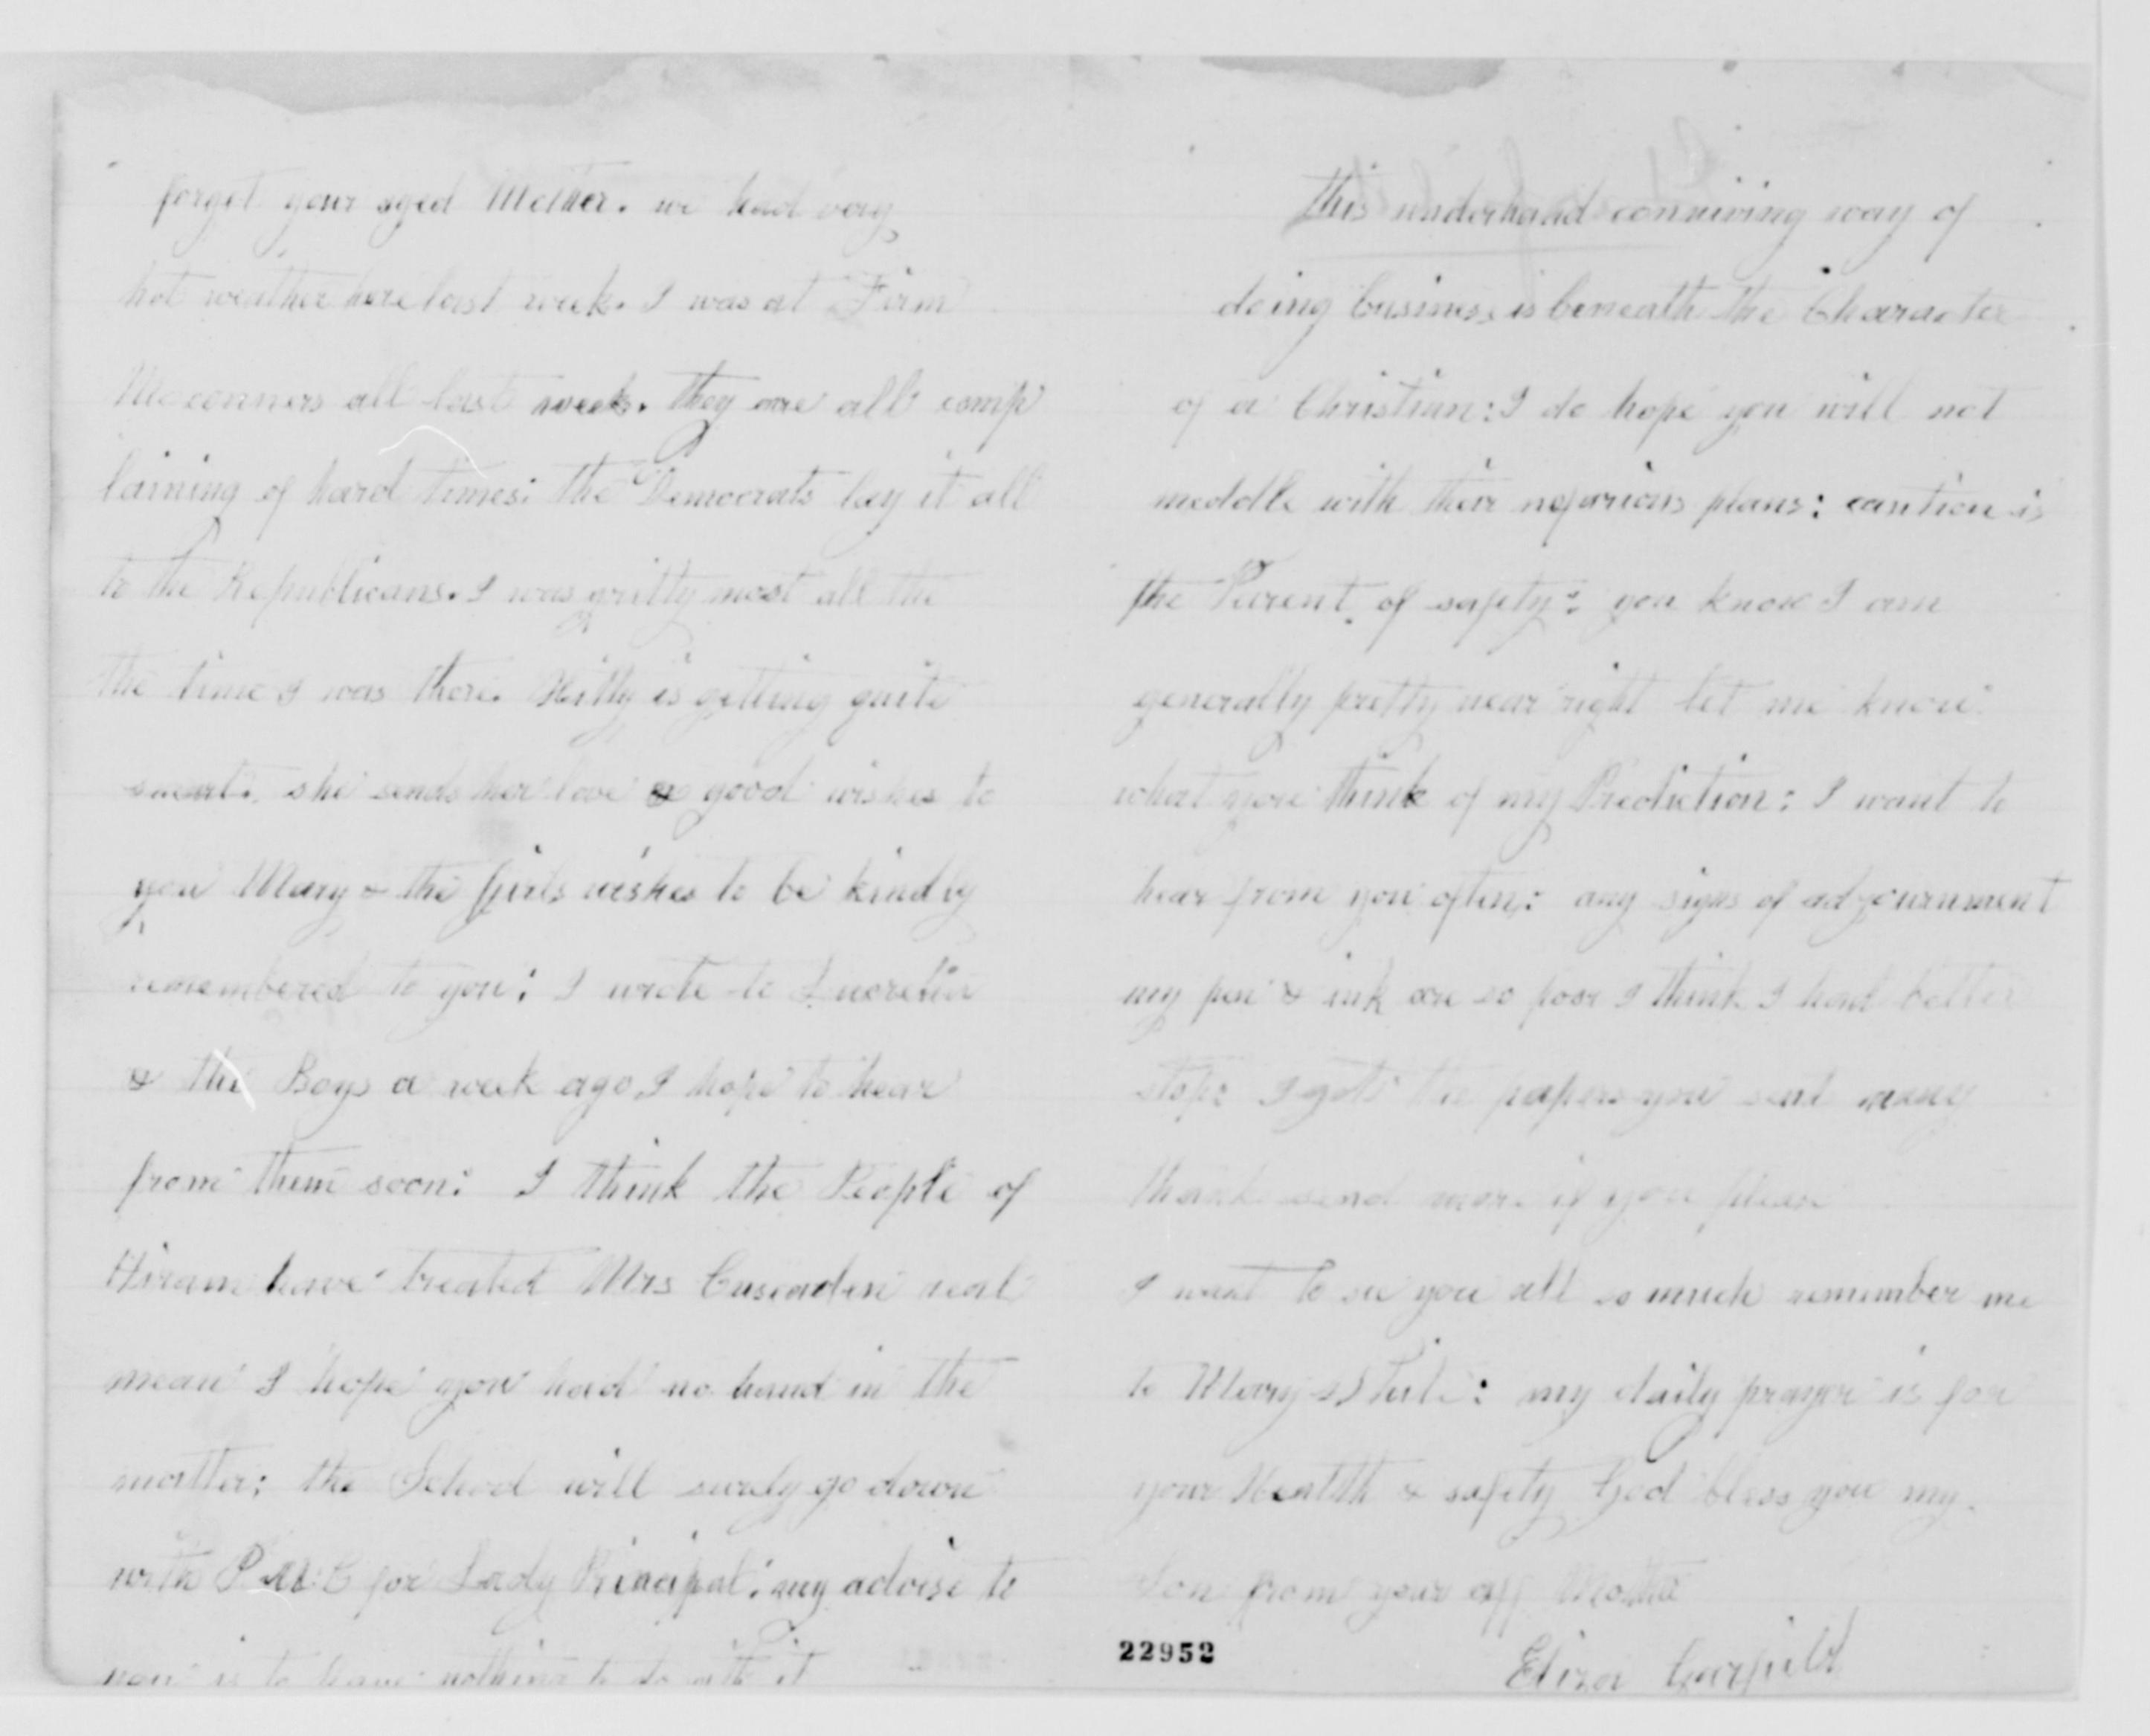 forget your aged Mother. we had very
hot weather here last week. I was at
all last week. they are all comp
laining of hard times: the Democrats lay it all
to the Republicans. I was gritty most all the
the time I was there. Hitty is getting quite
smart. she sends her love & good wishes to
you Mary & the Girls wishes to be kindly
remembered to you: I wrote to Lucretia
& the Boys a week ago, I hope to hear
from them soon: I think the People of
Hiram have treated Mrs real
mean I hope you had no hand in the
matter; the School will surely go down
with for Lady Principal: my advise to
you is to have nothing to do with it
this underhand conniving way of
doing business is beneath the Character
of a Christian: I do hope you will not
meddle with their nefarious plans: caution is
the Parent of safety: you know I am
generally pretty near right let me know
what you think of my Prediction: I want to
hear from you often: any signs of adjournment
my pen & ink are so poor I think I had better
stop: I got the papers you sent many
thank send more if you please
I want to see you all so much remember me
to Mary my daily prayer is for
your Health & safety God bless you my
Son from your aff Mother
22952
Eliza Garfield